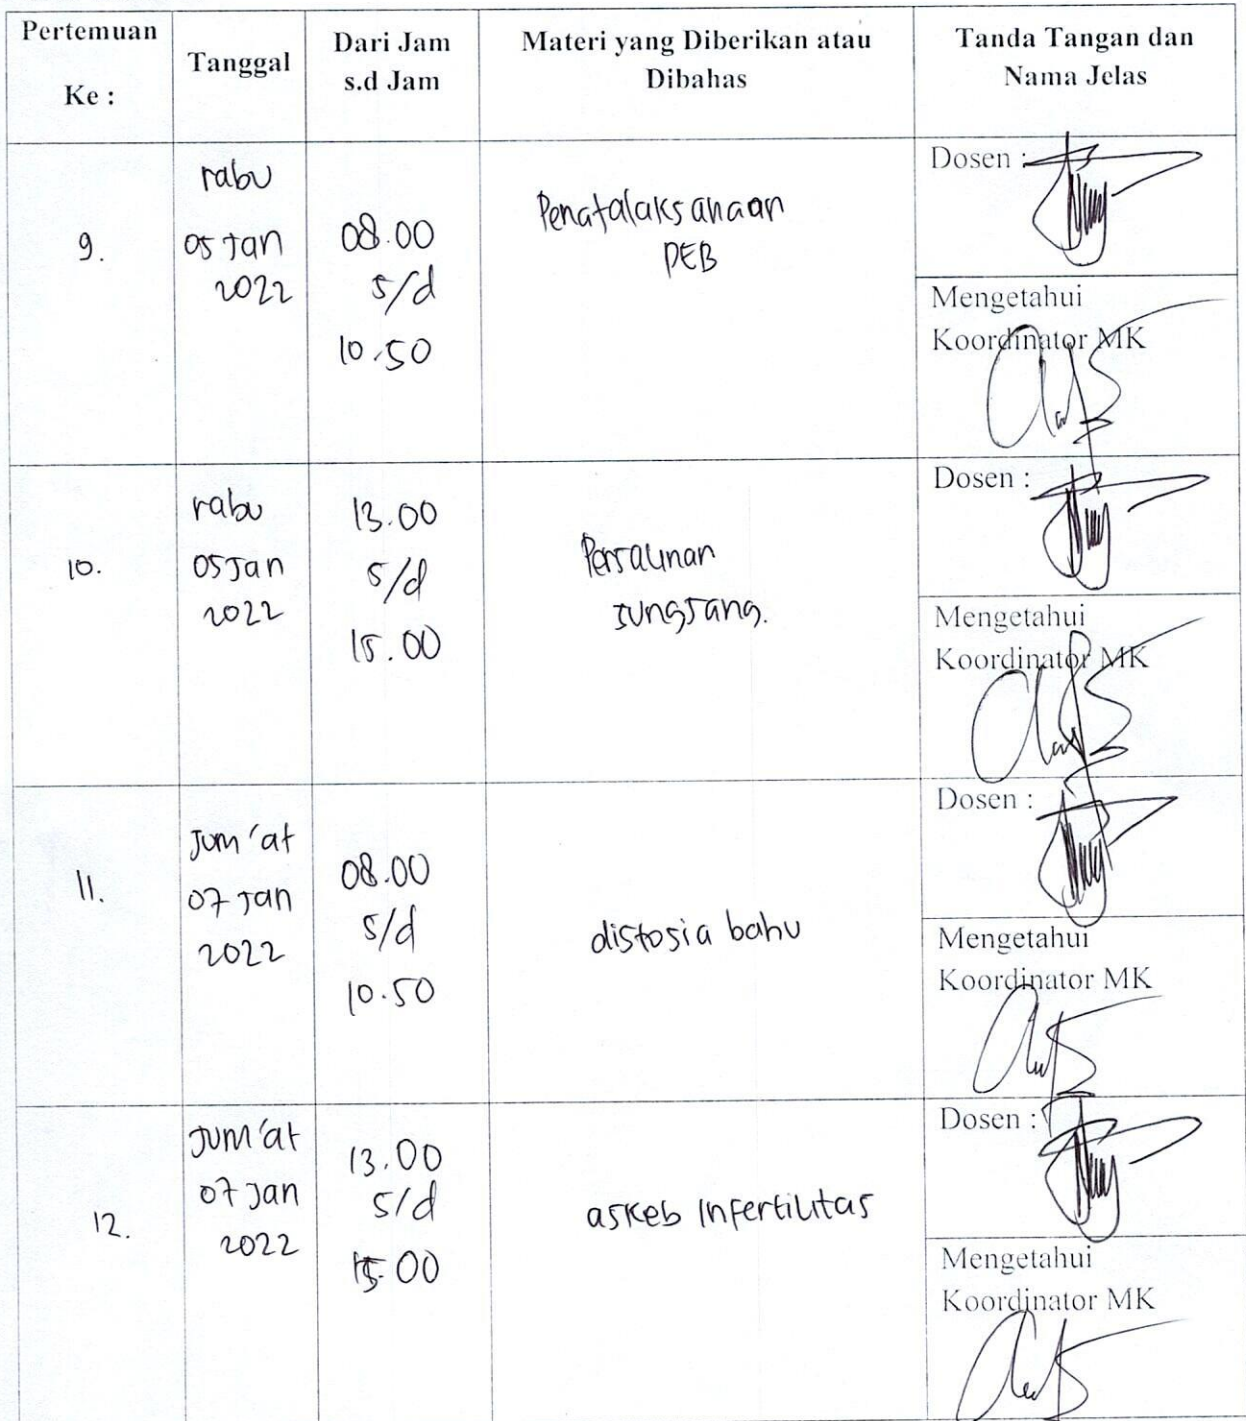 Pertemuan
Ke :
Tanggal
Dari Jam
s.d Jam
Materi yang Diberikan atau
Dibahas
Tanda Tangan dan
Nama Jelas
9.
rabu
05 Jan
2022
08.00
s/d
10.50
Penatalaksanaan
PEB
Dosen :
Mengetahui
Koordinator MK
10.
rabu
05 Jan
2022
13.00
s/d
15.00
Persalinan
sungsang.
Dosen :
Mengetahui
Koordinator MK
11.
Jum'at
07 Jan
2022
08.00
s/d
10.50
distosia bahu
Dosen :
Mengetahui
Koordinator MK
12.
Jum'at
07 Jan
2022
13.00
s/d
15.00
askeb Infertilitas
Dosen :
Mengetahui
Koordinator MK